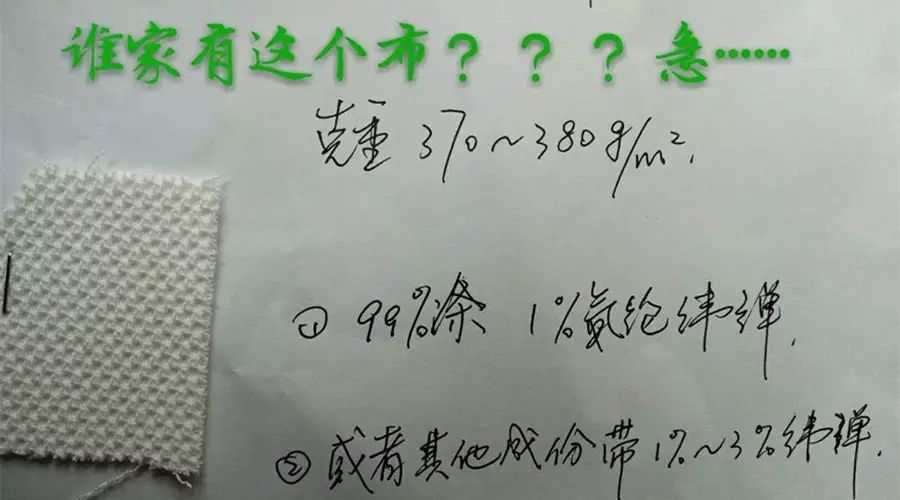 谁家有这个布？？？急……
克重 370~380g/m².
① 99%涤 1%氨纶纬弹.
② 或者其他成份带1%~3%纬弹.